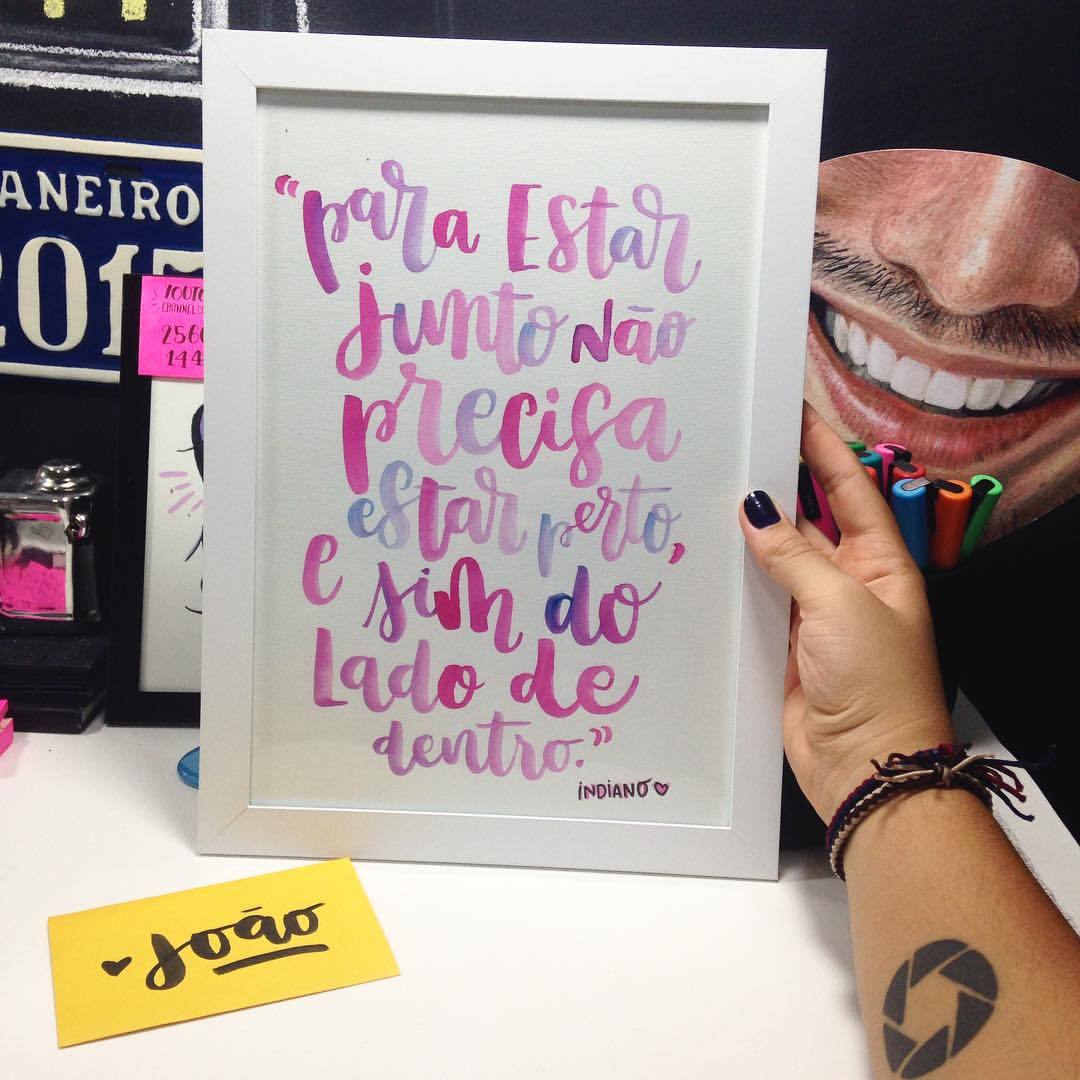 “para Estar
junto Não
precisa
estar perto,
e sim do
Lado de
dentro.”
INDIANO
João
ANEIRO
2017
CHANNEL
2560
144